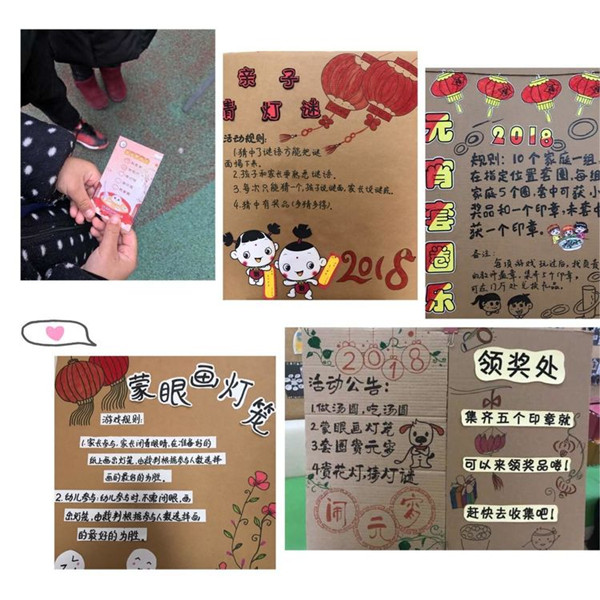 亲子
猜灯谜
活动规则:
1.猜中了谜语方能把谜
面摘下来。
2.孩子和家长要熟悉谜语。
3.每次只能猜一个,孩子说谜面,家长说谜底
4.猜中有奖品(多猜多得)
2018
元宵套圈乐
2018
规则:10个家庭一组
在指定位置套圈,每组
家庭5个圈,套中可获小
奖品和一个印章,未套中
获一个印章。
备注:
每项游戏玩过后,找负责
教师盖章,集齐5个印章,
可在门厅处兑换礼品。
蒙眼画灯笼
游戏规则:
1.家长参与:家长闭着眼睛,在准备好的
纸上画出灯笼,由裁判根据参与人数选择
画的最好的为胜。
2.幼儿参与:幼儿参与时,不需闭眼,画
出灯笼,由裁判根据参与人数选择画
的最好的为胜。
2018
活动公告:
1.做汤圆,吃汤圆
2.蒙眼画灯笼
3.套圈赛元宵
4.赏花灯,猜灯谜
闹元宵
领奖处
集齐五个印章就
可以来领奖品喽!
赶快去收集吧!